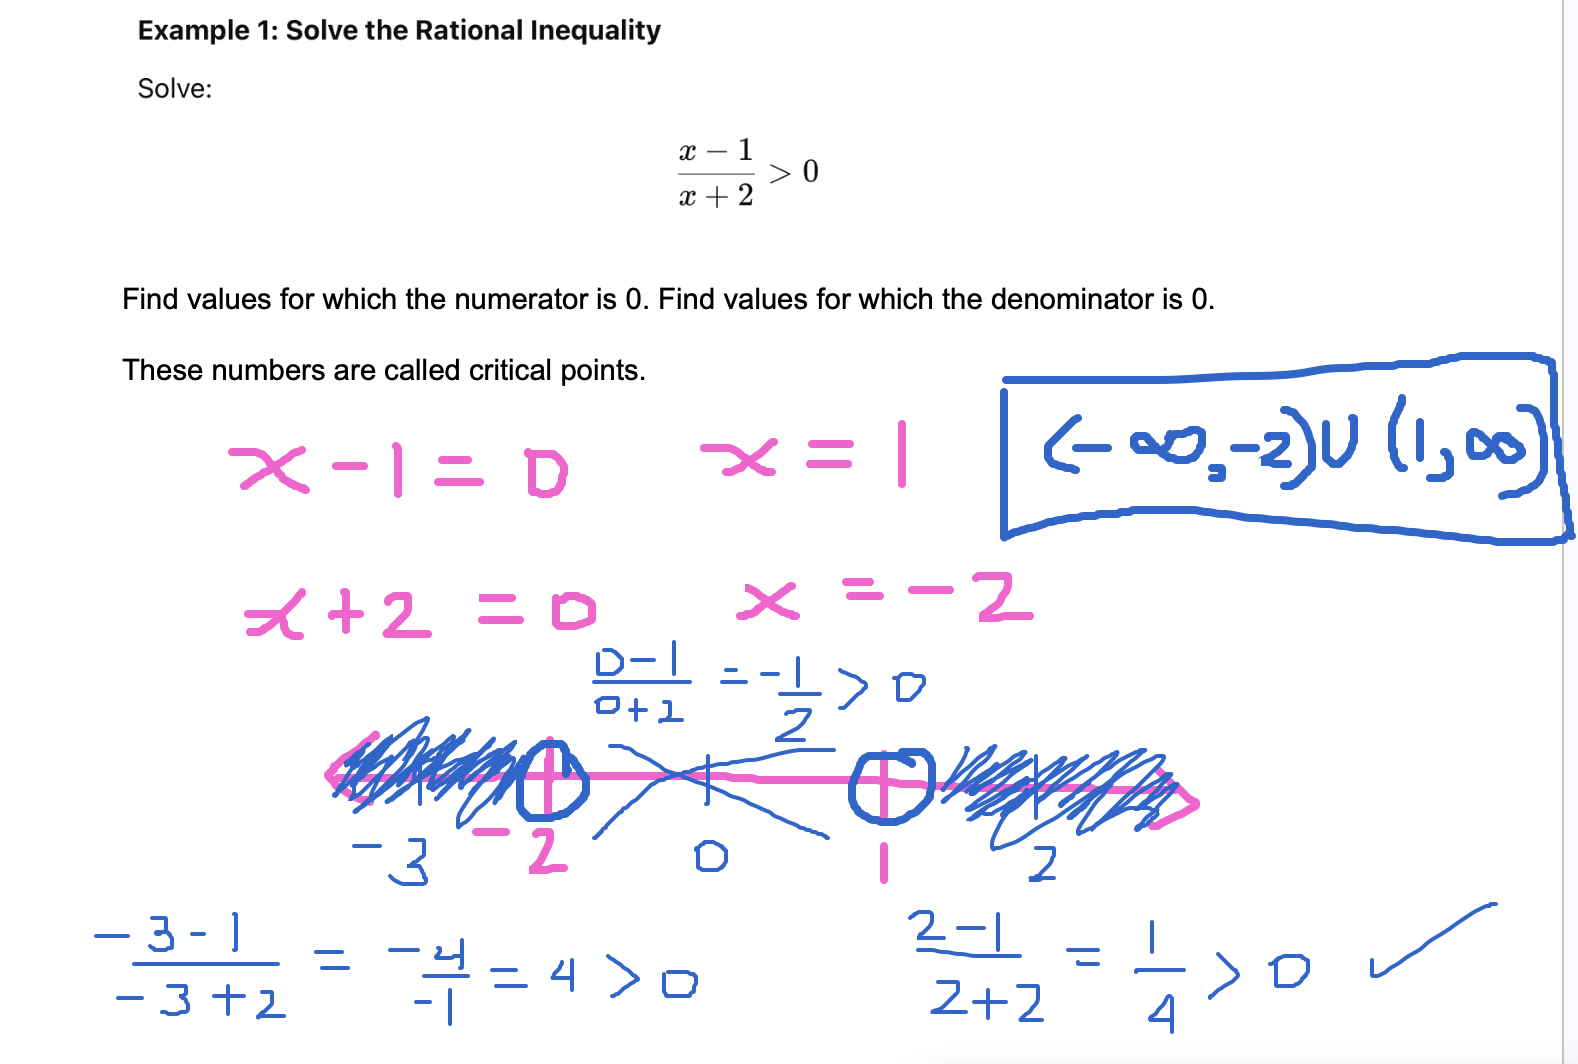 Example 1: Solve the Rational Inequality
Solve:
x − 1
x + 2 > 0
Find values for which the numerator is 0. Find values for which the denominator is 0.
These numbers are called critical points.
x - 1 = 0 x = 1
(-∞, -2) U (1, ∞)
x + 2 = 0 x = -2
0-1 = -1 > 0
0+2 2
-3 -2 0 1 2
-3-1 = -4 = 4 > 0
-3+2 -1
2-1 = 1 > 0 ✓
2+2 4